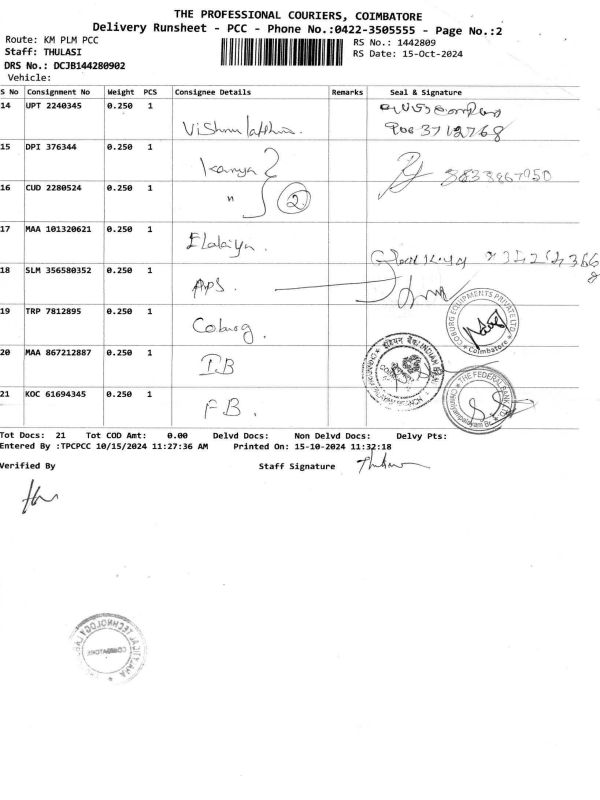 THE PROFESSIONAL COURIERS, COIMBATORE
Delivery Runsheet - PCC - Phone No.:0422-3505555 - Page No.:2
Route: KM PLM PCC
RS No.: 1442809
Staff: THULASI
RS Date: 15-Oct-2024
DRS No.: DCJB144280902
Vehicle:
S No Consignment No Weight PCS Consignee Details Remarks Seal & Signature
14 UPT 2240345 0.250 1
15 DPI 376344 0.250 1 Kanya
16 CUD 2280524 0.250 1 " 2
17 MAA 101320621 0.250 1 Elakiya.
18 SLM 356580352 0.250 1 APS.
19 TRP 7812895 0.250 1 Coburg. COBURG EQUIPMENTS PRIVATE LTD Coimbatore
20 MAA 867212887 0.250 1 I.B INDIAN BANK
21 KOC 61694345 0.250 1 F.B. THE FEDERAL BANK LTD
Tot Docs: 21 Tot COD Amt: 0.00 Delvd Docs: Non Delvd Docs: Delvy Pts:
Entered By :TPCPCC 10/15/2024 11:27:36 AM Printed On: 15-10-2024 11:32:18
Verified By Staff Signature